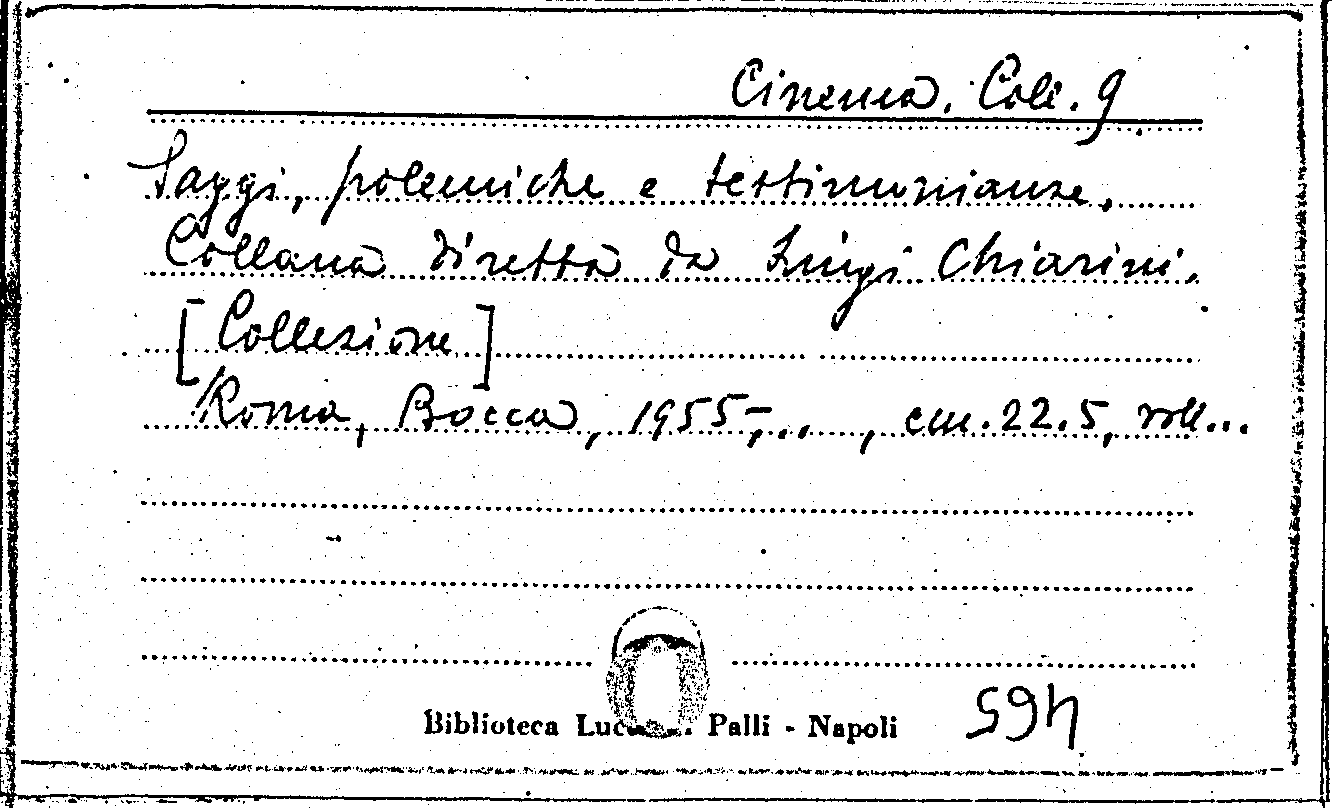 Cinema. Coll. 9
Saggi, polemiche e testimonianze.
Collana diretta da Luigi Chiarini.
[Collezione]
Roma, Bocca, 1955-,.. , cm. 22.5, voll...
Biblioteca Palli - Napoli